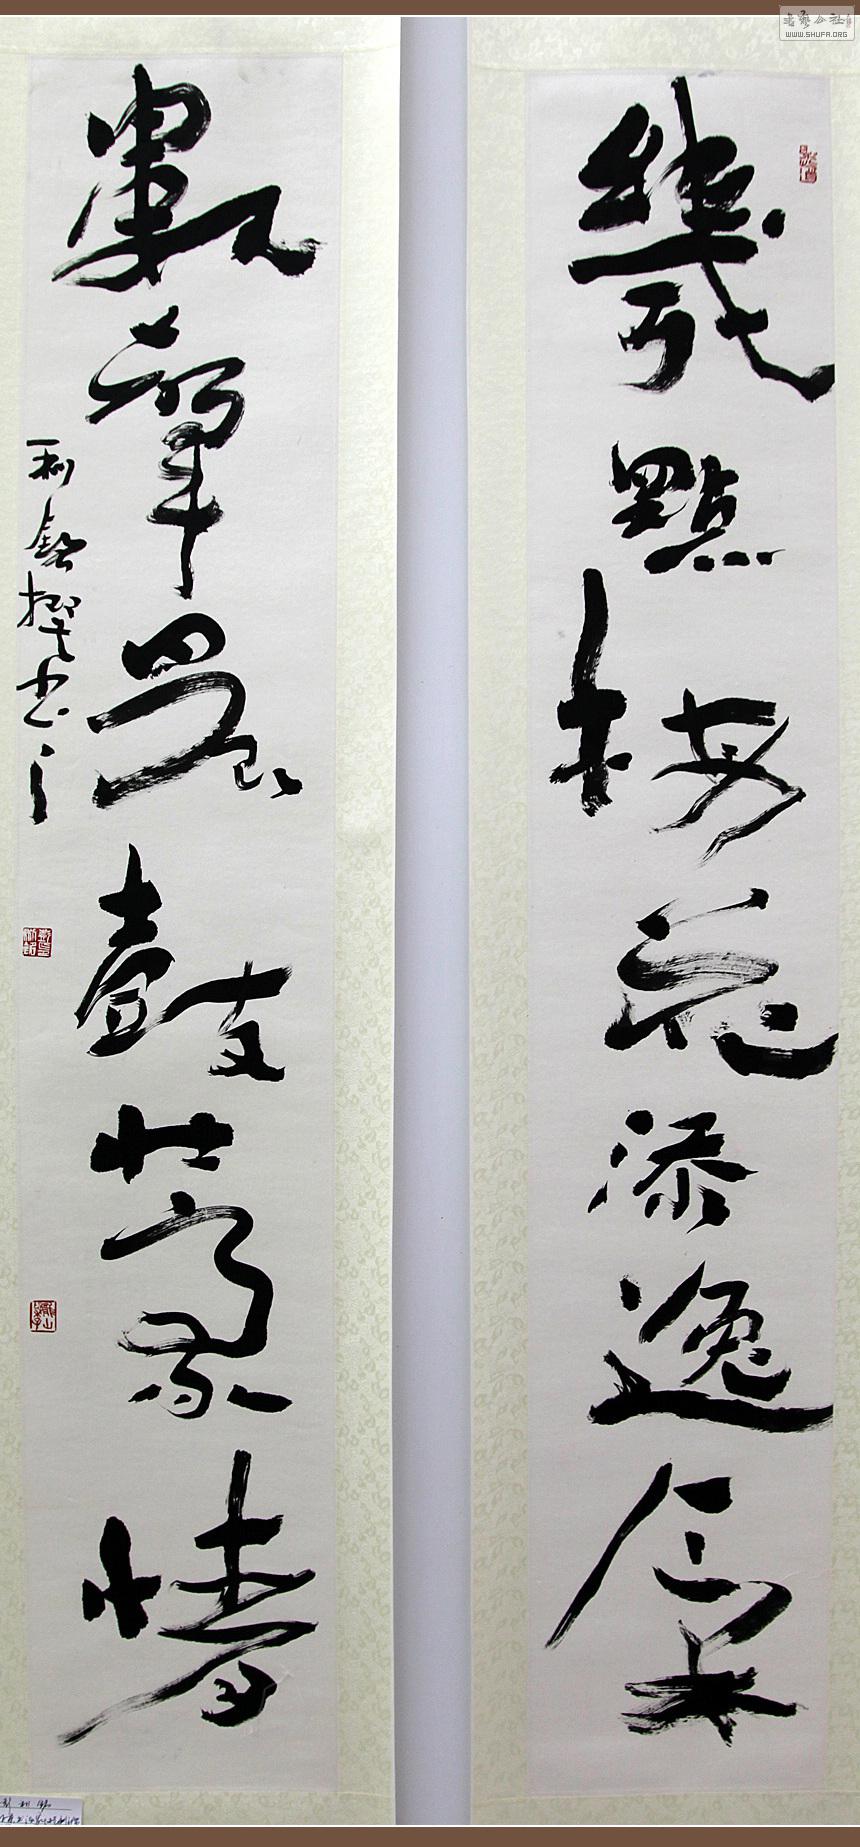 書藝公社
WWW.SHUFA.ORG
幾點梅花添逸氣
數聲晨鼓壯豪情
利銘撰书